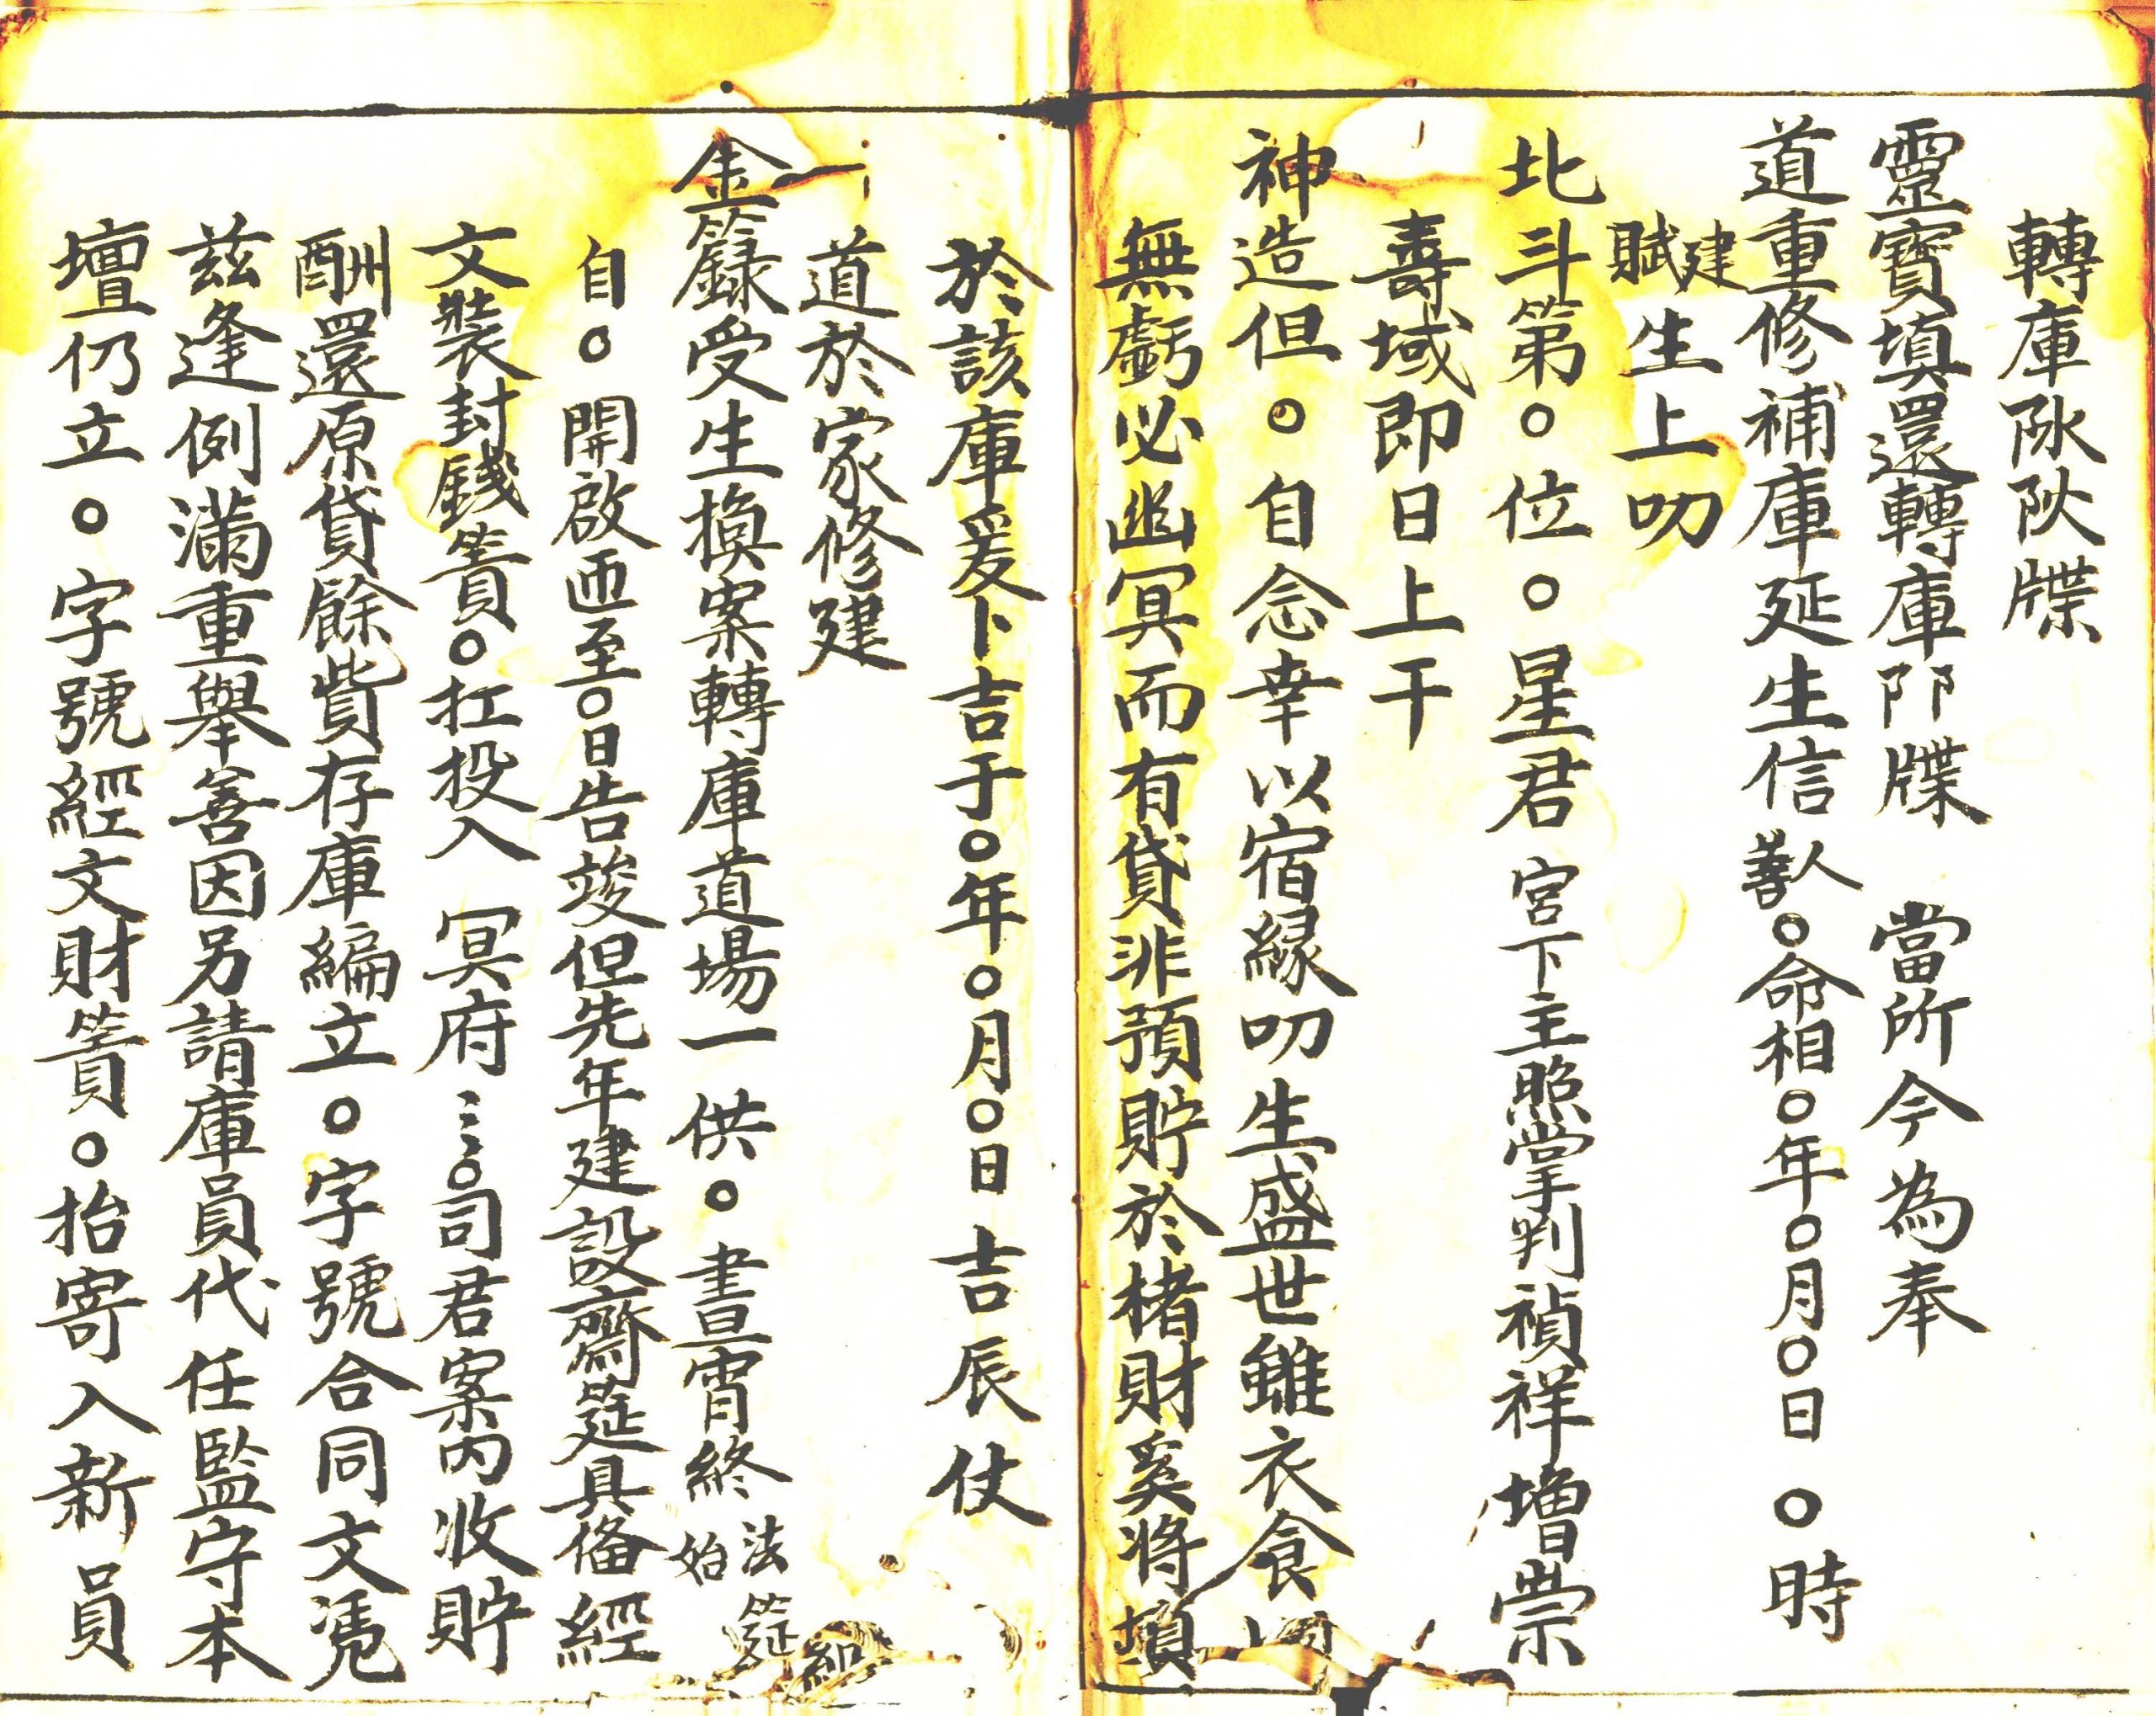 轉庫阥阦牒
靈寶填還轉庫阝阝牒　當所今為奉
道重修補庫延生信善人○命相○年○月○日○時
建
賦生上叨
北斗第○位○星君宮下主照掌判禎祥增崇
壽域即日上干
神造但○自念幸以宿緣叨生盛世雖衣食
無虧必幽冥而有貸非預貯於楮財奚將填
於該庫爰卜吉于○年○月○日吉辰仗
道於家修建
金籙受生換案轉庫道場一供○晝宵終始法筵
自○開啟迊至○日告竣但先年建設齋筵具俻經
文裝封錢簀○扛投入冥府⋮⋮○司君案內收貯
酬還原貸餘貲存庫編立○字號合同文凴
茲逢例滿重舉善因另請庫員代任監守本
壇仍立○字號經文財簀○抬寄入新員